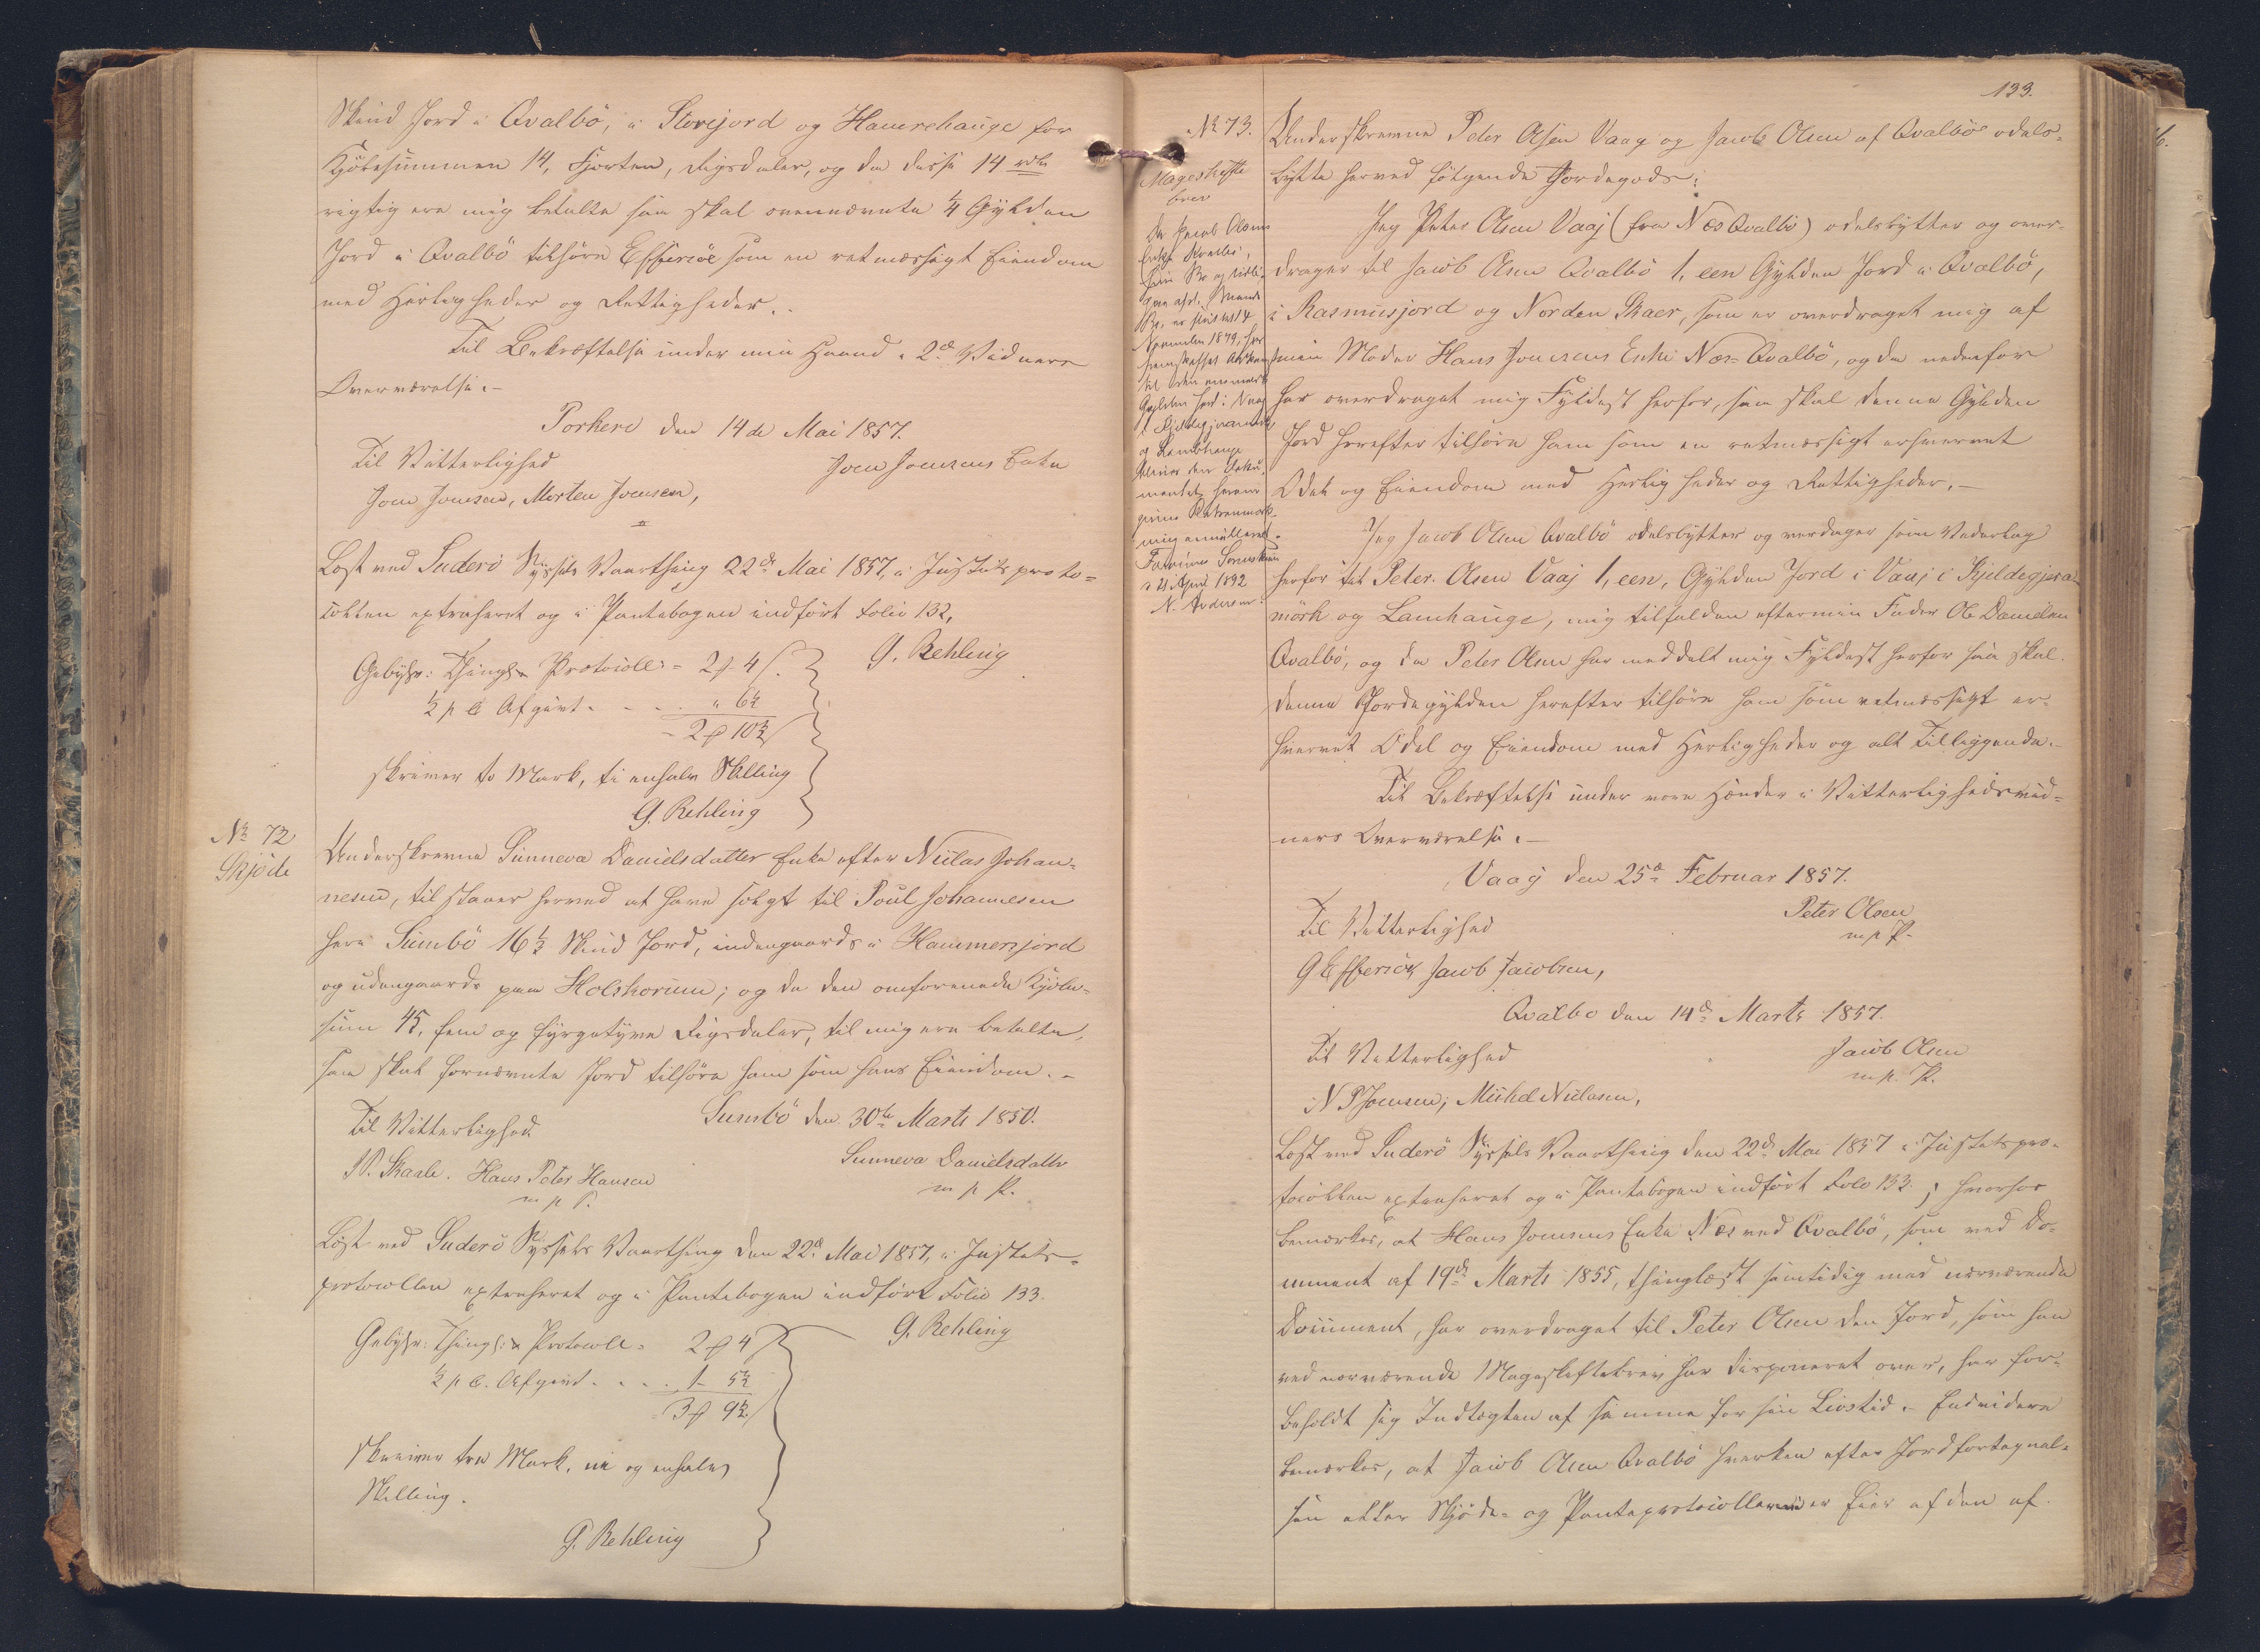 Skind Jord i Qvalbö, i Storejord og Hamrehauge for
Kjöbesummen 14, Fjorten, Rigsdaler, og da disse 14 rdlr
rigtig ere mig betalte saa skal ovennævnte 1/4 Gylden
Jord i Qvalbö tilhöre Effersöe som en retmæssigt Eiendom
med Herligheder og Rettigheder.
Til Bekræftelse under min Haand i 2de Vidners
Overværelse.-
Porkere den 14de Mai 1857.
Til Vitterlighed
Joen Joensens Enke
Joen Joensen, Morten Joensen,
Læst ved Suderö Syssels Vaarthing 22de Mai 1857, i Justitsproto-
collen extraheret og i Pantebogen indfört Folio 132,
G. Rehling
Gebyhr: Thingl. & Protocoll = 2 ℔ 4 ß.
1/2 p C Afgivt - - - " 6 1/2
2 ℔ 10 1/2
skriver to Mark, ti enhalv Skilling
G. Rehling
No 72
Skjöde
Underskrevne Sunneva Danielsdatter Enke efter Niclas Johan-
nesen, tilstaaer herved at have solgt til Poul Johannesen
her i Sumbö 16 1/2 Skind Jord, indengaards i Hammersjord
og udengaards paa Holshorum; og da den omforenede Kjöbe-
sum 45, fem og fyrgetyve Rigsdaler, til mig ere betalte,
saa skal fornævnte Jord tilhöre ham som hans Eiendom.-
Sumbö den 30te Marts 1850.
Til Vitterlighed
Sunneva Danielsdatter
m p P.
P. Skaale. Hans Peter Hansen
m p P.
Læst ved Suderö Syssels Vaarthing den 22de Mai 1857, i Justits-
protocollen extraheret og i Pantebogen indfört Folio 133.
G. Rehling
Gebyhr: Thingl: & Protocoll = 2 ℔ 4
1/2 p C. Afgivt - - - 1 - 5 1/2
3 ℔ 9 1/2
skriver tre Mark, ni og enhalv
Skilling.
G. Rehling
133.
No 73.
Mageskifte
brev
Da Jacob Olsens
Enke Kvalbö,
til den
Gylden Jord i Vaag
i Kjeldegjeramörk
og Lambhauge
d 21 April 1892
Underskrevne Peter Olsen Vaag og Jacob Olsen af Qvalböe odels-
bytte herved fölgende Jordegods:
Jeg Peter Olsen Vaaj (fra Næs Qvalbö) odelsbytter og over-
drager til Jacob Olsen Qvalbö 1, een Gylden Jord i Qvalbö,
i Rasmusjord og Norden Skaer, som er overdraget mig af
min Moder Hans Joensens Enke Næs-Qvalbö, og da nedenfor
har overdraget mig Fyldest herfor, saa skal denne Gylden
Jord herefter tilhöre ham som en retmæssigt erhvervet
Odel og Eiendom med Herligheder og Rettigheder.-
Jeg Jacob Olsen Qvalbö odelsbytter og overdrager som Vederlag
herfor til Peter Olsen Vaaj 1, een, Gylden Jord i Vaaj i Kjeldegjera-
mörk og Lamhauge, mig tilfalden efter min Fader Ole Danielsen
Qvalbö, og da Peter Olsen har meddelt mig Fyldest herfor saa skal
denne Jordegylden herefter tilhöre ham som retmæssigt er-
hvervet Odel og Eiendom med Herligheder og alt Tilliggende.-
Til Bekræftelse under vore Hænder i Vitterlighedsvid-
ners Overværelse.-
Vaag den 25de Februar 1857.
Til Vitterlighed
Peter Olsen
m p P.
G Effersöe, Jacob Jacobsen,
Qvalbo den 14de Marts 1857.
Til Vitterlighed
Jacob Olsen
m. p. P.
N P Joensen, Michel Niclasen,
Læst ved Suderö Syssels Vaarthing den 22de Mai 1857 i Justitspro-
tocollen extraheret og i Pantebogen indfört Folo 133.; hvorhos
bemærkes, at Hans Joensens Enke Næs ved Qvalbö, som ved Do-
cument af 19de Marts 1855, thinglæst samtidig med nærværende
Document, har overdraget til Peter Olsen den Jord, som han
ved nærværende Mageskiftebrev har disponeret over, har for-
beholdt sig Indtægten af samme for sin Livstid.- Endvidere
bemærkes, at Jacob Olsen Qvalbö hverken efter Jordfortegnel-
sen eller Skjöde- og Panteprotocollerne er Eier af den af